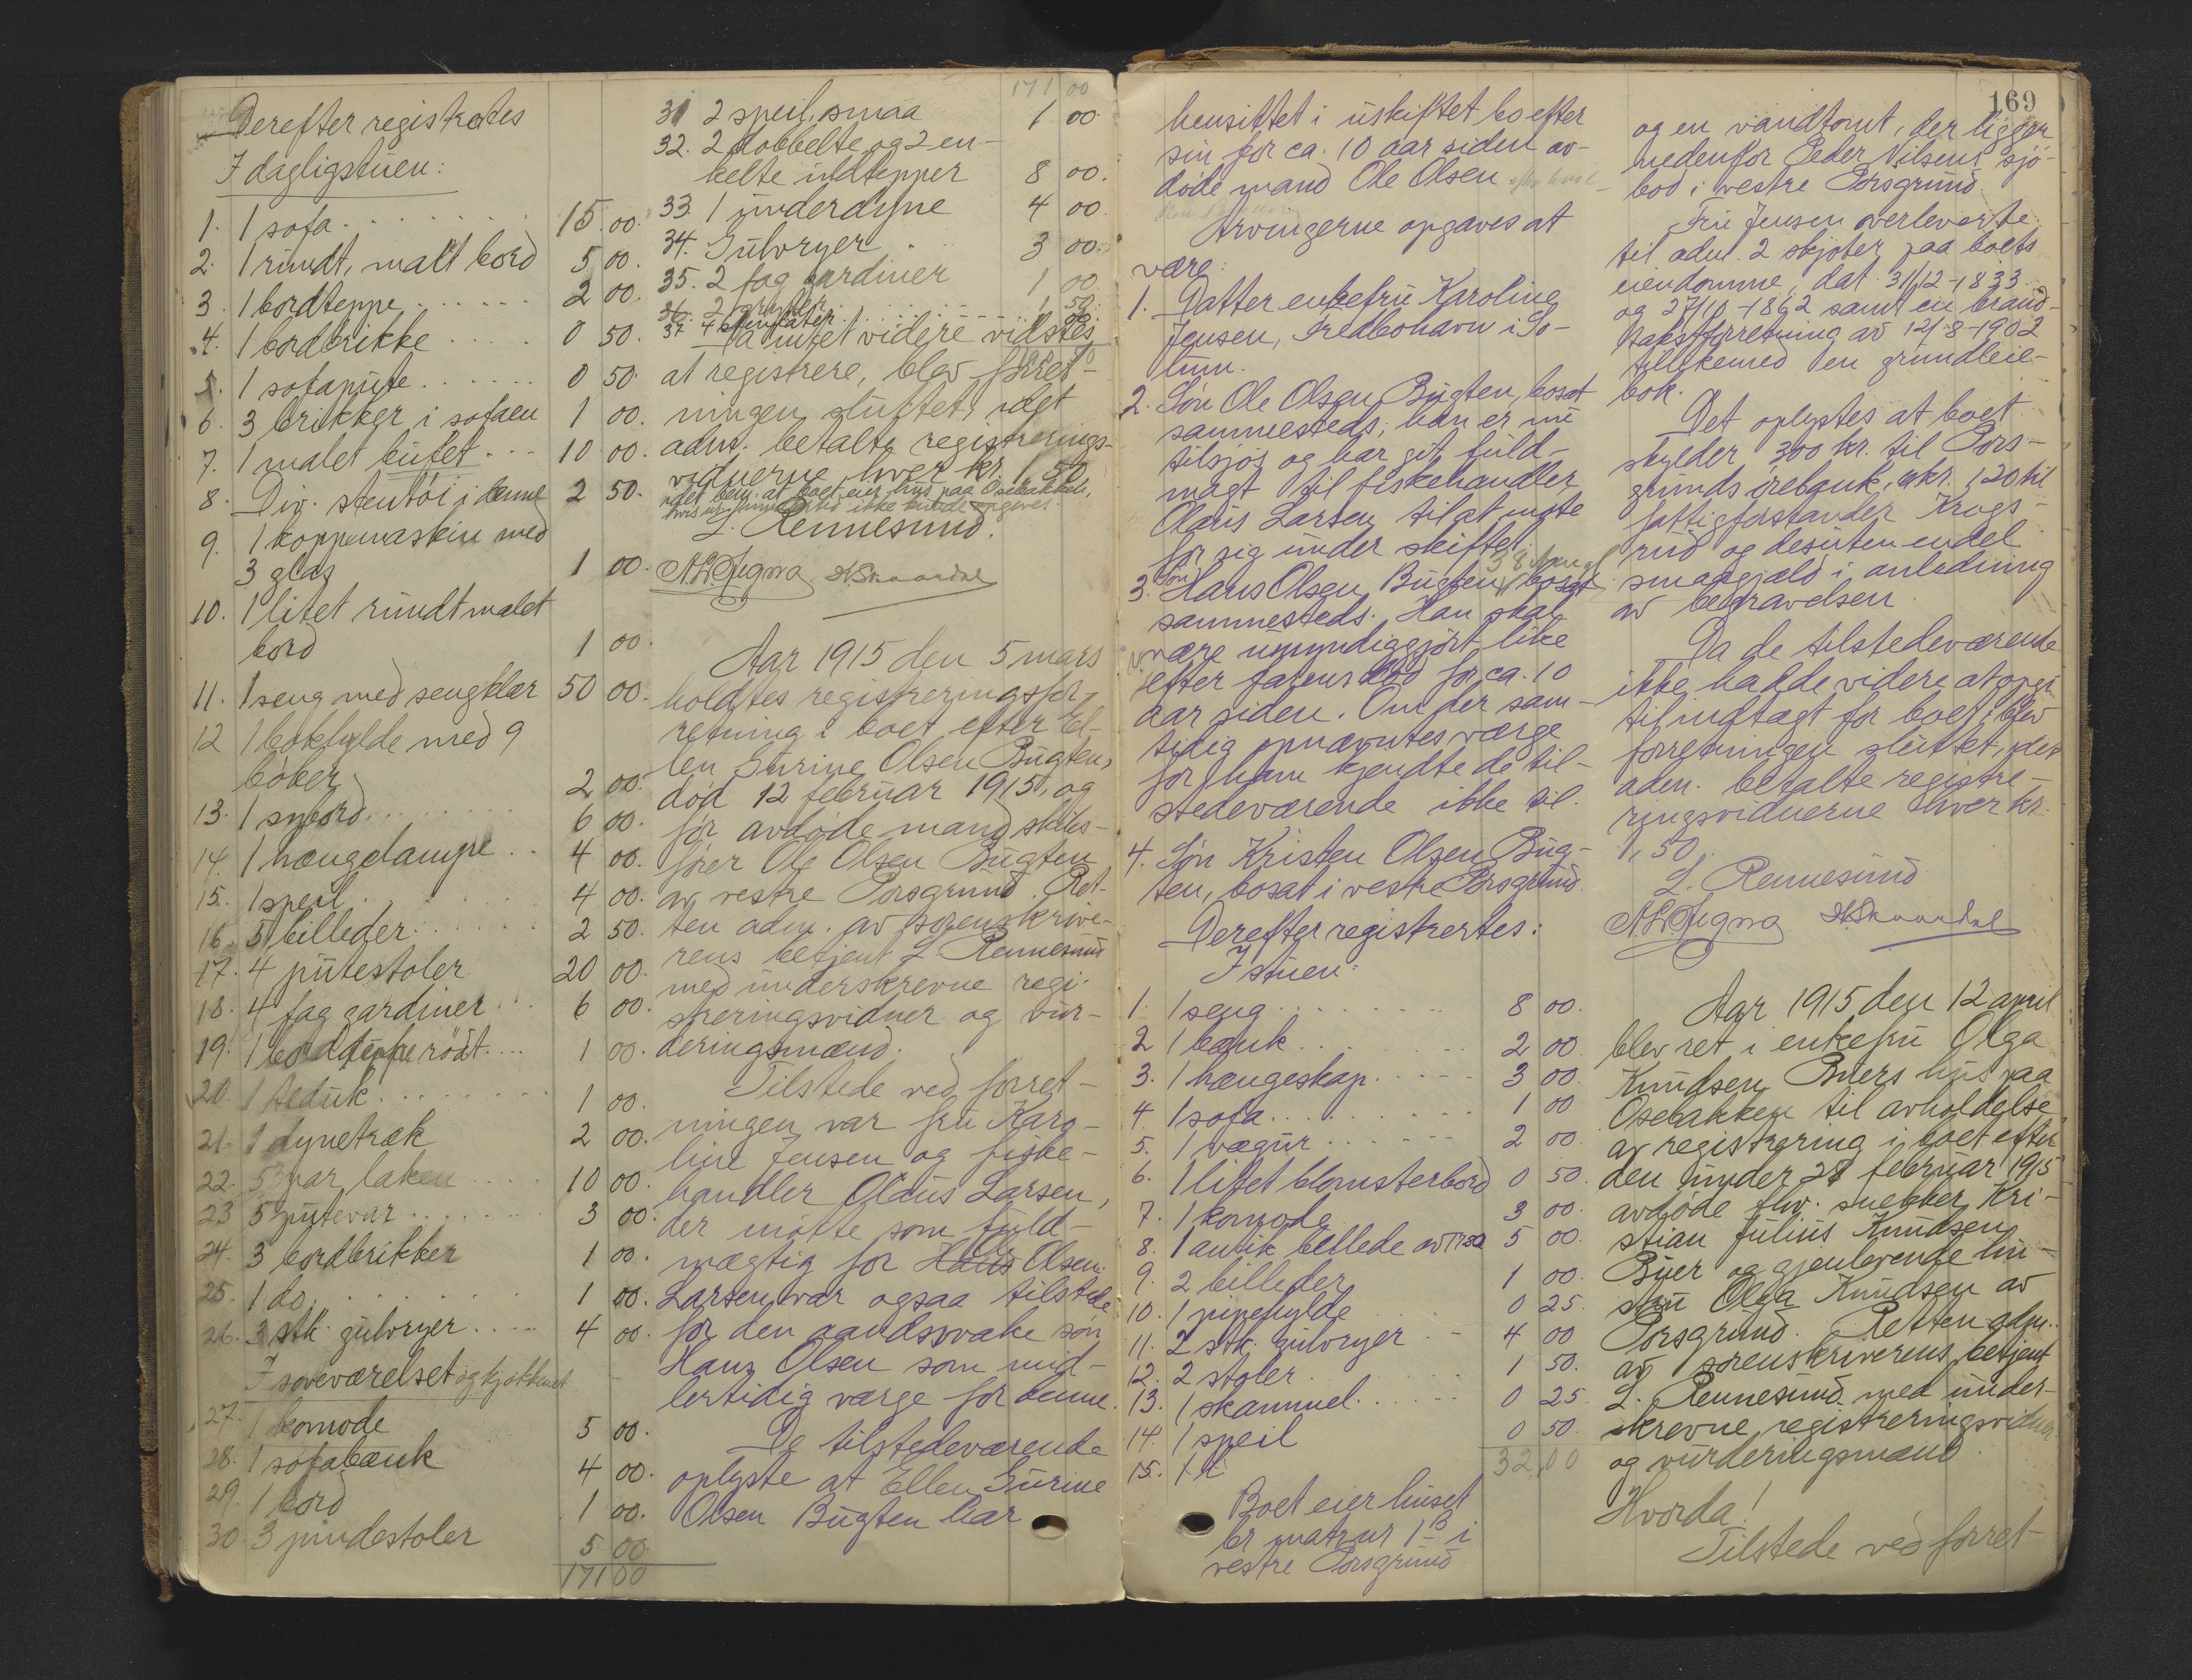 Derefter registrertes
I dagligstuen:
1. 1 sofa . . . . . . . 15 00.
2. 1 rundt, malt bord 5 00.
3. 1 bordteppe . . . . . . 2 00.
4. 1 bordbrikke . . . . 0 50.
5. 1 sofapute . . . . . . 0 50.
6. 3 brikker i sofaen 1 00.
7. 1 malet bufet . . . 10 00.
8. Div. stentöi i denne 2 50.
9. 1 koppemaskin med
3 glas 1 00.
10. 1 litet rundt malet
bord 1 00.
11. 1 seng med sengklær 50 00.
12 1 bokhylde med 9
böker 2 00.
13. 1 sybord . . . . . . 6 00.
14. 1 hængelampe . . 4 00.
15. 1 speil . . . 4 00.
16. 5 billeder . . . . . . 2 50.
17. 4 putestoler 20 00.
18. 4 fag gardiner . . . 6 00.
19. 1 bordteppe rödt . . . 1 00.
20. 1 teduk . . . . . . . . 1 00.
21. 1 dynetræk 2 00.
22. 5 par laken . . . . 10 00.
23 5 putevar . . . . . . 3 00.
24. 3 bordbrikker 1 00.
25. 1 do. . . . . . . . . 1 00.
26. 3 stk. gulvryer . . . . 4 00.
I soveværelset og kjøkkenet
27. 1 komode 5 00.
28. 1 sofabænk 4 00.
29. 1 bord 1 00.
30. 3 pindestoler 5 00.
171 00
171 00
31 2 speil, smaa 1 00.
32. 2 dobbelte og 2 en-
kelte uldtepper 8 00.
33. 1 underdyne 4 00
34. Gulvryer . 3 00.
35. 2 fag gardiner 1 00.
36. 2 gryder . . . . . . . . 1 50.
37 4 stenfater . . . . . . .
Da intet videre vidstes
at registrere, blev forret-
ningen sluttet, idet
adm. betalte registrerings-
vidnerne hver kr. 1,50
idet bem. at boet eier hus paa Osebakken,
L. Rennesund.
N. Skaardal
Aar 1915 den 5 mars
holdtes registreringsfor-
retning i boet efter El-
len Surine Olsen Bugten,
död 12 februar 1915, og
för avdöde mand skibs-
förer Ole Olsen Bugten
av vestre Porsgrund. Ret-
ten adm. av sorenskrive-
rens betjent L. Rennesund
med underskrevne regi-
streringsvidner og vur-
deringsmænd.
Tilstede ved forret-
ningen var fru Karo-
line Jensen og fiske-
handler Olaus Larsen,
der mötte som fuld-
mægtig for Hans Olsen.
Larsen var ogsaa tilstede
for den aandssvake sön
Hans Olsen som mid-
lertidig værge for denne.
De tilstedeværende
oplyste at Ellen Surine
Olsen Bugten har
169
hensittet i uskiftet bo efter
sin for ca. 10 aar siden av-
döde mand Ole Olsen
Arvingerne opgaves at
være:
1. Datter enkefru Karoline
Jensen, Fredbohavn i So-
lum.
2. Sön Ole Olsen Bugten, bosat
sammesteds; han er nu
tilsjös og har git fuld-
magt til fiskehandler
Olaus Larsen til at möte
for sig under skiftet.
3. Sön Hans Olsen Bugten, bosat
sammesteds. Han skal
være umyndiggjort like
efter farens död for ca. 10
aar siden. Om der sam-
tidig opnævntes værge
for ham kjendte de til-
stedeværende ikke til.
4. Sön Kristen Olsen Bug-
ten, bosat i vestre Porsgrund.
Derefter registrertes:
I stuen:
1. 1 seng . . . . . . . . 8 00.
2 1 bænk . . . . . . . 2 00
3. 1 hængeskap . . . . . 3 00.
4. 1 sofa . . . . . . . . 1 00
5. 1 vægur . . . . . . 2 00.
6. 1 litet blomsterbord 0 50.
7. 1 komode 3 00.
8. 1 antik billede av 5 00.
9. 2 billeder 1 00.
10. 1 pipehylde 0 25.
11. 2 stk. gulvryer . - 4 00
12. 2 stoler . . . . . . 1 50.
13. 1 skammel . . . . . 0 25
14. 1 speil 0 50.
15. 1 32,00
Boet eier huset
br matr nr 1 B i
vestre Porsgrund
og en vandtomt, der ligger
nedenfor Peder Nilsens sjö-
bod i vestre Porsgrund.
Fru Jensen overleverte
til adm. 2 skjöter paa boets
eiendomme, dat. 31/12-1833
og 27/10-1862 samt en brand-
takstforretning av 12/8-1902
tillikemed en grundleie-
bok.
Det oplystes at boet
skylder 300 kr. til Pors-
grunds örebank, kr. 120 til
fattigforstander Krogs-
rud og desuten endel
smaagjæld i anledning
av begravelsen.
Da de tilstedeværende
ikke hadde videre at opgi
til indtægt for boet, blev
forretningen sluttet, idet
adm. betalte registre-
ringsvidnerne hver kr.
1,50.
L. Rennesund
N. Skaardal
Aar 1915 den 12 april
blev ret i enkefru Olga
Knudsen Buers hus paa
Osebakken til avholdelse
av registrering i boet efter
den under 28 februar 1915
avdöde fhv. snekker Kri-
stian Julius Knudsen
Buer og gjenlevende hu-
stru Olga Knudsen av
Porsgrund. Retten adm.
av sorenskriverens betjent
L. Rennesund med under-
skrevne registreringsvidner
og vurderingsmænd.
Hvorda!
Tilstede ved forret-